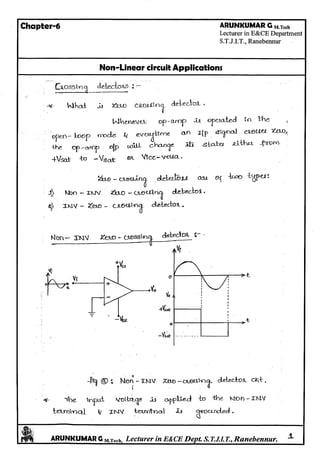 Chapter-6
ARUNKUMAR G M.Tech
Lecturer in E&CE Department
S.T.J.I.T., Ranebennur
Non-Linear circuit Applications
Crossing detectors :-
* What is zero crossing detector.
Whenever op-amp is operated in the
open-loop mode & everytime an i/p signal crosses zero,
the op-amp o/p will change its state either from
+Vsat to -Vsat or Vice-versa.
Zero-crossing detectors are of two types:
1) Non-INV Zero-crossing detector.
2) INV-Zero-crossing detector.
Non-INV Zero-crossing detector :-
Vi
+Vcc
Vi
Vi
Vo
-Vcc
0
t
Vo
+Vsat
0
t
-Vsat
fig : Non-INV zero-crossing detector ckt.
* The input voltage is applied to the Non-INV
terminal & INV terminal is grounded.
ARUNKUMAR G M.Tech, Lecturer in E&CE Dept. S.T.J.I.T., Ranebennur. 1